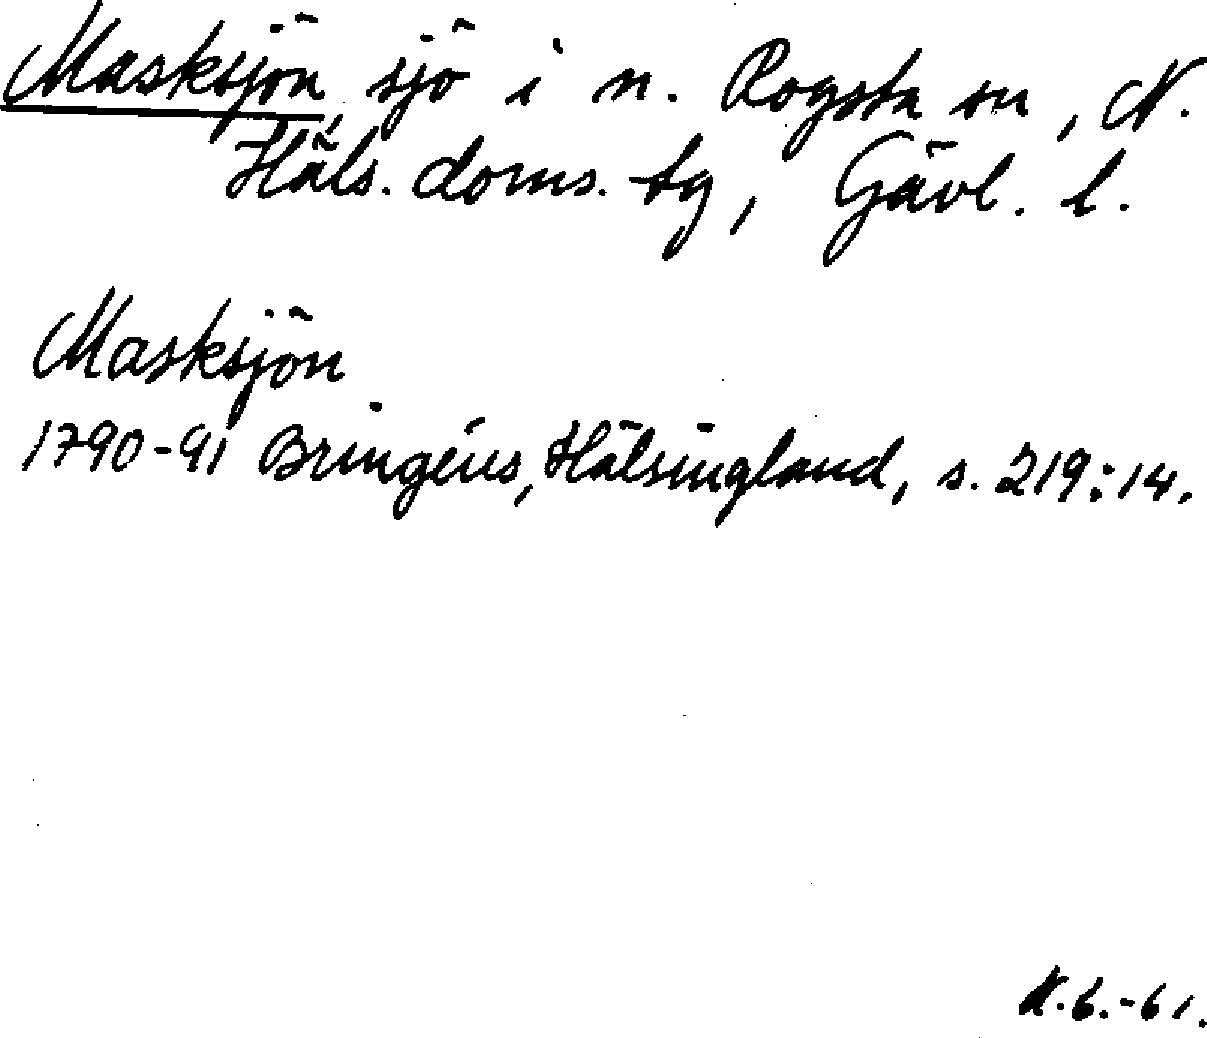 Masksjön, sjö i n. Rogsta sn, N.
Häls. doms. tg, Gävl. l.
Masksjön
1790-91 Bringéus, Hälsingland, s. 219:14.
N.6.-61.